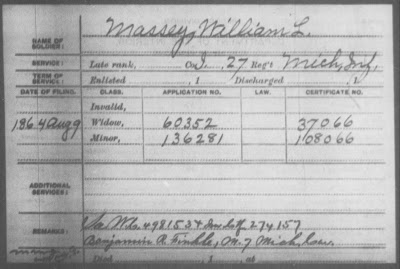 NAME OF SOLDIER: Massey, William L.
SERVICE: Late rank, Co. I, 27 Reg't Mich. Inf.
TERM OF SERVICE: Enlisted , 1 Discharged , 1
DATE OF FILING. CLASS. APPLICATION NO. LAW. CERTIFICATE NO.
Invalid,
1864 Aug 9 Widow, 60352 37066
Minor, 136281 108066
ADDITIONAL SERVICES:
REMARKS: 498153 274157
Benjamin R. Finkle, M. 7 Mich. Cav.
Died , 1 , at